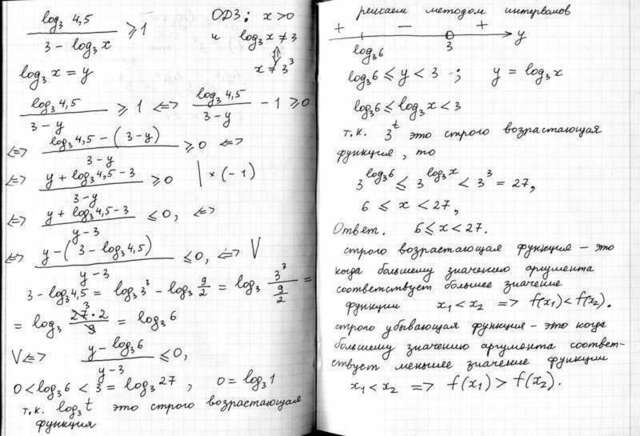 log₃4,5 / (3 - log₃x) ≥ 1
ОДЗ: x > 0
и log₃x ≠ 3
⇕
x ≠ 3³
log₃x = y
log₃4,5 / (3 - y) ≥ 1 <=> log₃4,5 / (3 - y) - 1 ≥ 0
<=> (log₃4,5 - (3 - y)) / (3 - y) ≥ 0 <=>
<=> (y + log₃4,5 - 3) / (3 - y) ≥ 0 | × (-1)
<=> (y + log₃4,5 - 3) / (y - 3) ≤ 0, <=>
<=> (y - (3 - log₃4,5)) / (y - 3) ≤ 0, <=> V
3 - log₃4,5 = log₃3³ - log₃ 9/2 = log₃ 3³ / (9/2) =
= log₃ 27·2 / 9 = log₃6
V <=> (y - log₃6) / (y - 3) ≤ 0,
0 < log₃6 < 3 = log₃27, 0 = log₃1
т.к. log₃t это строго возрастающая
функция
решаем методом интервалов
+ - +
log₃6 3 y
log₃6 ≤ y < 3 ; y = log₃x
log₃6 ≤ log₃x < 3
т.к. 3ᵗ это строго возрастающая
функция, то
3^(log₃6) ≤ 3^(log₃x) < 3³ = 27,
6 ≤ x < 27,
Ответ. 6 ≤ x < 27.
строго возрастающая функция – это
когда большему значению аргумента
соответствует большее значение
функции x₁ < x₂ => f(x₁) < f(x₂).
строго убывающая функция – это когда
большему значению аргумента соответ-
ствует меньшее значение функции
x₁ < x₂ => f(x₁) > f(x₂).